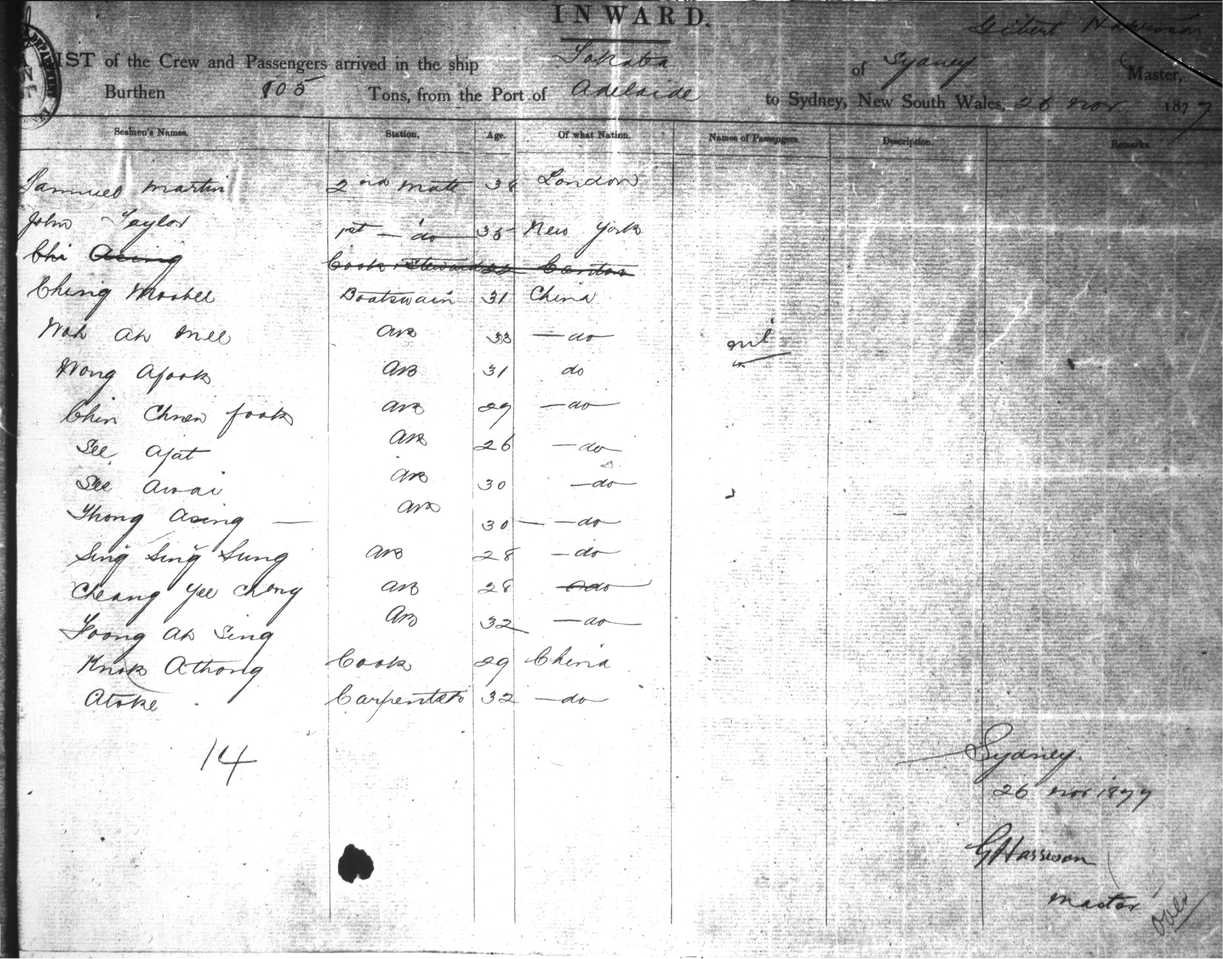 INWARD.
LIST of the Crew and Passengers arrived in the ship of Sydney Gilbert Master,
Burthen 805 Tons, from the Port of Adelaide to Sydney, New South Wales, 26 Nov 1877
Seamen's Names. Station. Age. Of what Nation. Names of Passengers. Description. Remarks.
Samuel Martin 2nd Mate 38 London
John Taylor 1st — do 35 New York
Chi Asing Cook & Steward Canton
Ching Boatswain 31 China
Wah Ah Mee AB 33 — do nil
Wong Afook AB 31 do
Chin Chuen Fook AB 29 — do
See Afat AB 26 — do
See Awai AB 30 — do
Thong Asing — AB 30 — — do
Sing Sing Sung AB 28 — do
Cheang Yee Cheng AB 28 do
Foong Ah Sing AB 32 — do
Athong Cook 29 China
Atoke Carpenter 32 — do
14
Sydney.
26 Nov 1877
G Harrison
Master
over